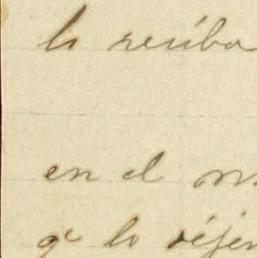 lo reciba
en el m
qe lo dejen